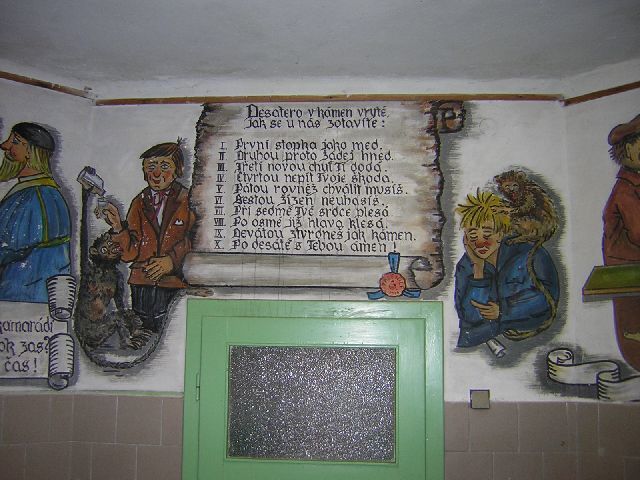 Desatero v kámen vryté,
Jak se u nás zotavíte:
I. První stopka jako med.
II. Druhou proto žádej hned.
III. Třetí novou chuť Ti dodá.
IV. Čtvrtou nepít Tvoje škoda.
V. Pátou rovněž chválit musíš.
VI. Šestou žízeň neuhasíš.
VII. Při sedmé Tvé srdce plesá
VIII. Po osmé již hlava klesá.
IX. Devátou ztvrdneš jak kámen.
X. Po desáté s Tebou ámen!
kamarádi
čas!